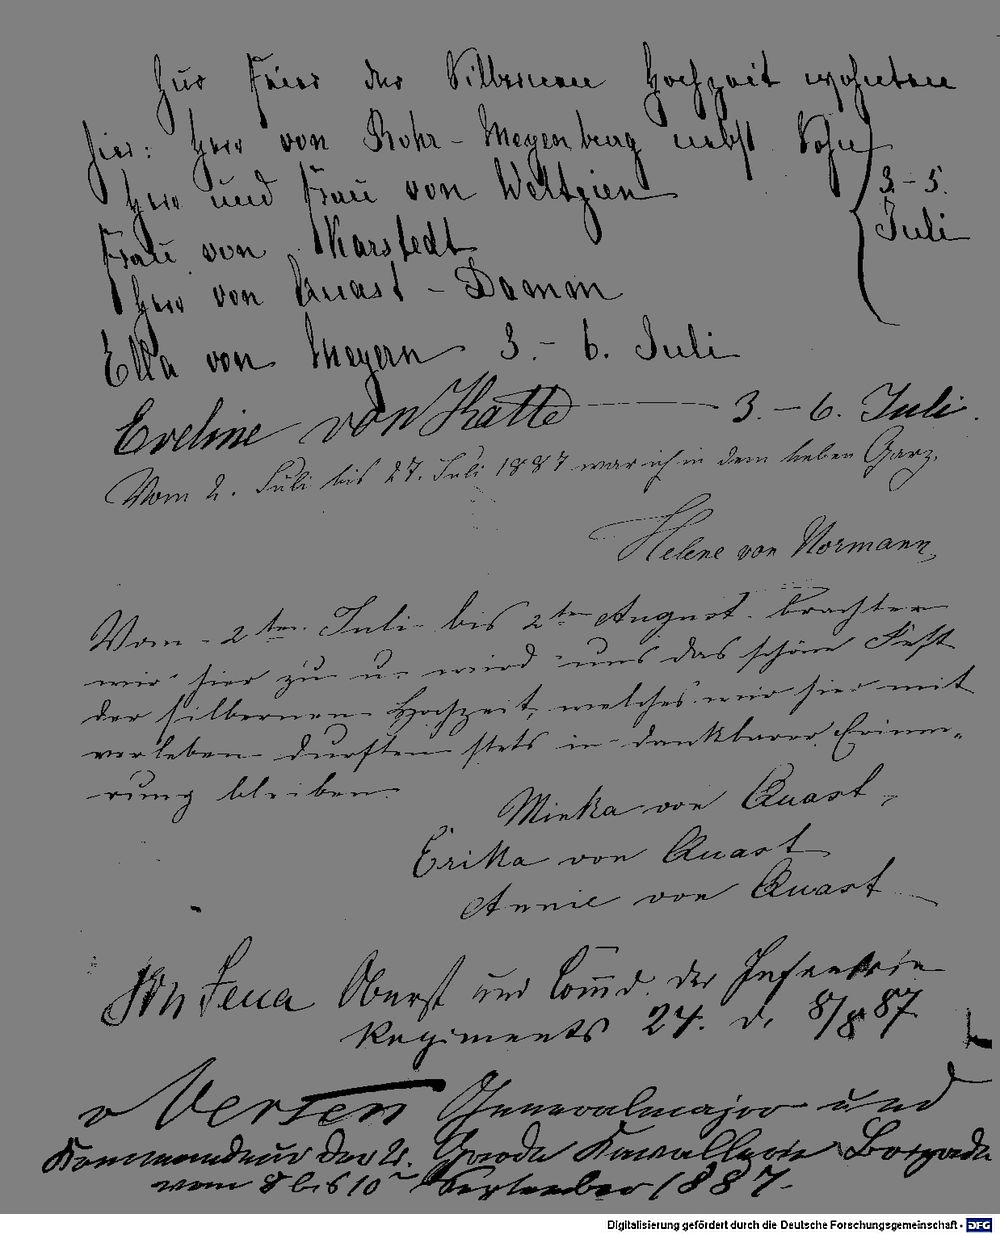 Zur Feier der Silbernen Hochzeit wohnten
hier: Herr von Rohr-Meyenburg nebst Sohn
Herr und Frau von Weltzien
3.-5.
Juli
Frau von Karstedt
Herr von Quast-Damm
Ella von Meyern 3.-6. Juli
Eveline von Katte 3.-6. Juli.
Vom 2. Juli bis 27. Juli 1887 war ich in dem lieben Garz.
Helene von Normann.
Vom 2ten Juli bis 2ten August brachten
wir hier zu u. wird uns das schöne Fest
der silbernen Hochzeit, welches wir hier mit
verleben durften stets in dankbarer Erinne-
rung bleiben.
Minka von Quast,
Erika von Quast
Annie von Quast
Oberst und Commd. der Infanterie
Regiments 24. d. 8/8 87
v Versen Generalmajor und
Kommandeur der 2. Garde Kavallerie Brigade
vom 8 bis 10 September 1887.
Digitalisierung gefördert durch die Deutsche Forschungsgemeinschaft - DFG